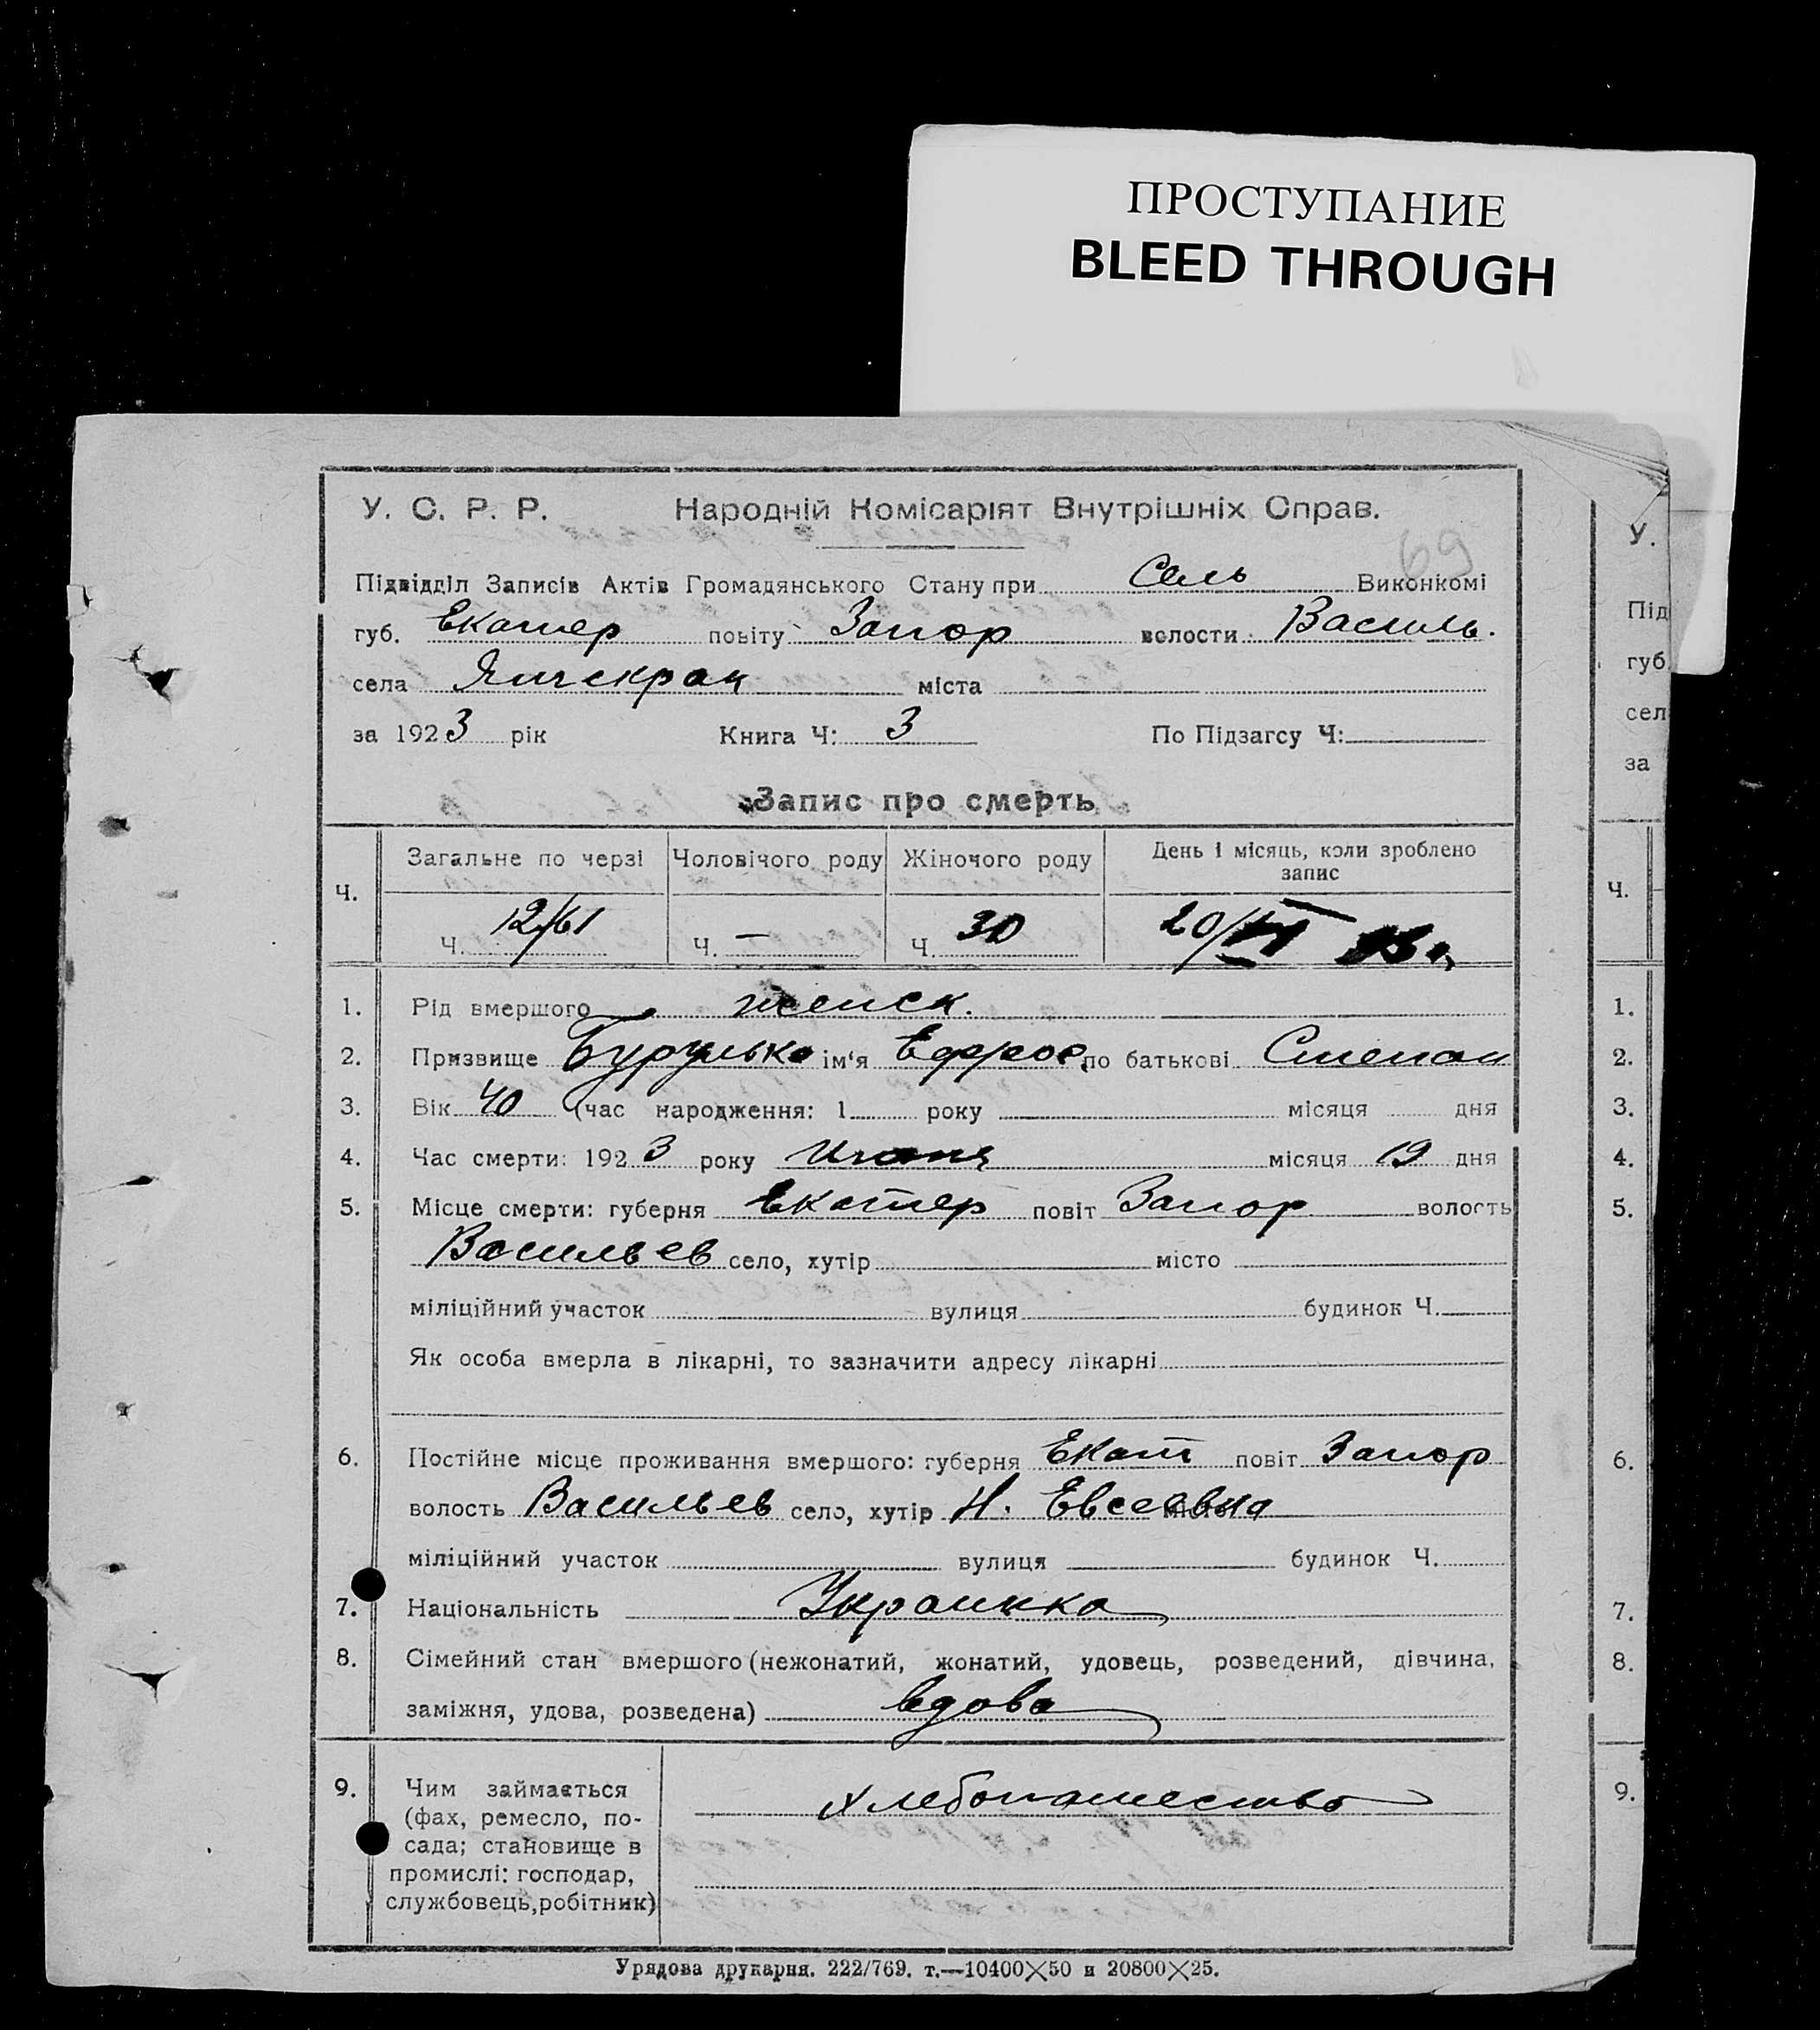 ПРОСТУПАНИЕ
BLEED THROUGH
У. С. Р. Р. Народній Комісаріят Внутрішніх Справ.
69
Підвідділ Записів Актів Громадянського Стану при Сель Виконкомі
губ. Екатер повіту Запор волости Василь.
села міста
за 1923 рік Книга Ч: 3 По Підзагсу Ч:
Запис про смерть
Ч. Загальне по черзі Чоловічого роду Жіночого роду День і місяць, коли зроблено запис
Ч. 12/61 Ч. — Ч. 30 20/VI
1. Рід вмершого женск.
2. Призвище Бурулько ім'я Ефрос по батькові Степан
3. Вік 40 (час народження: 1 року місяця дня
4. Час смерти: 1923 року Июня місяця 19 дня
5. Місце смерти: губерня Екатер повіт Запор волость
Васильев село, хутір місто
міліційний участок вулиця будинок Ч.
Як особа вмерла в лікарні, то зазначити адресу лікарні
6. Постійне місце проживання вмершого: губерня Екат повіт Запор
волость Васильев село, хутір Н. Евсеевка
міліційний участок вулиця будинок Ч.
7. Національність Украинка
8. Сімейний стан вмершого (нежонатий, жонатий, удовець, розведений, дівчина,
заміжня, удова, розведена) вдова
9. Чим займається хлебопашество
(фах, ремесло, по-
сада; становище в
промислі: господар,
службовець, робітник)
Урядова друкарня. 222/769. т.—10400×50 и 20800×25.
У.
Під
губ.
сел
за
Ч.
1.
2.
3.
4.
5.
6.
7.
8.
9.